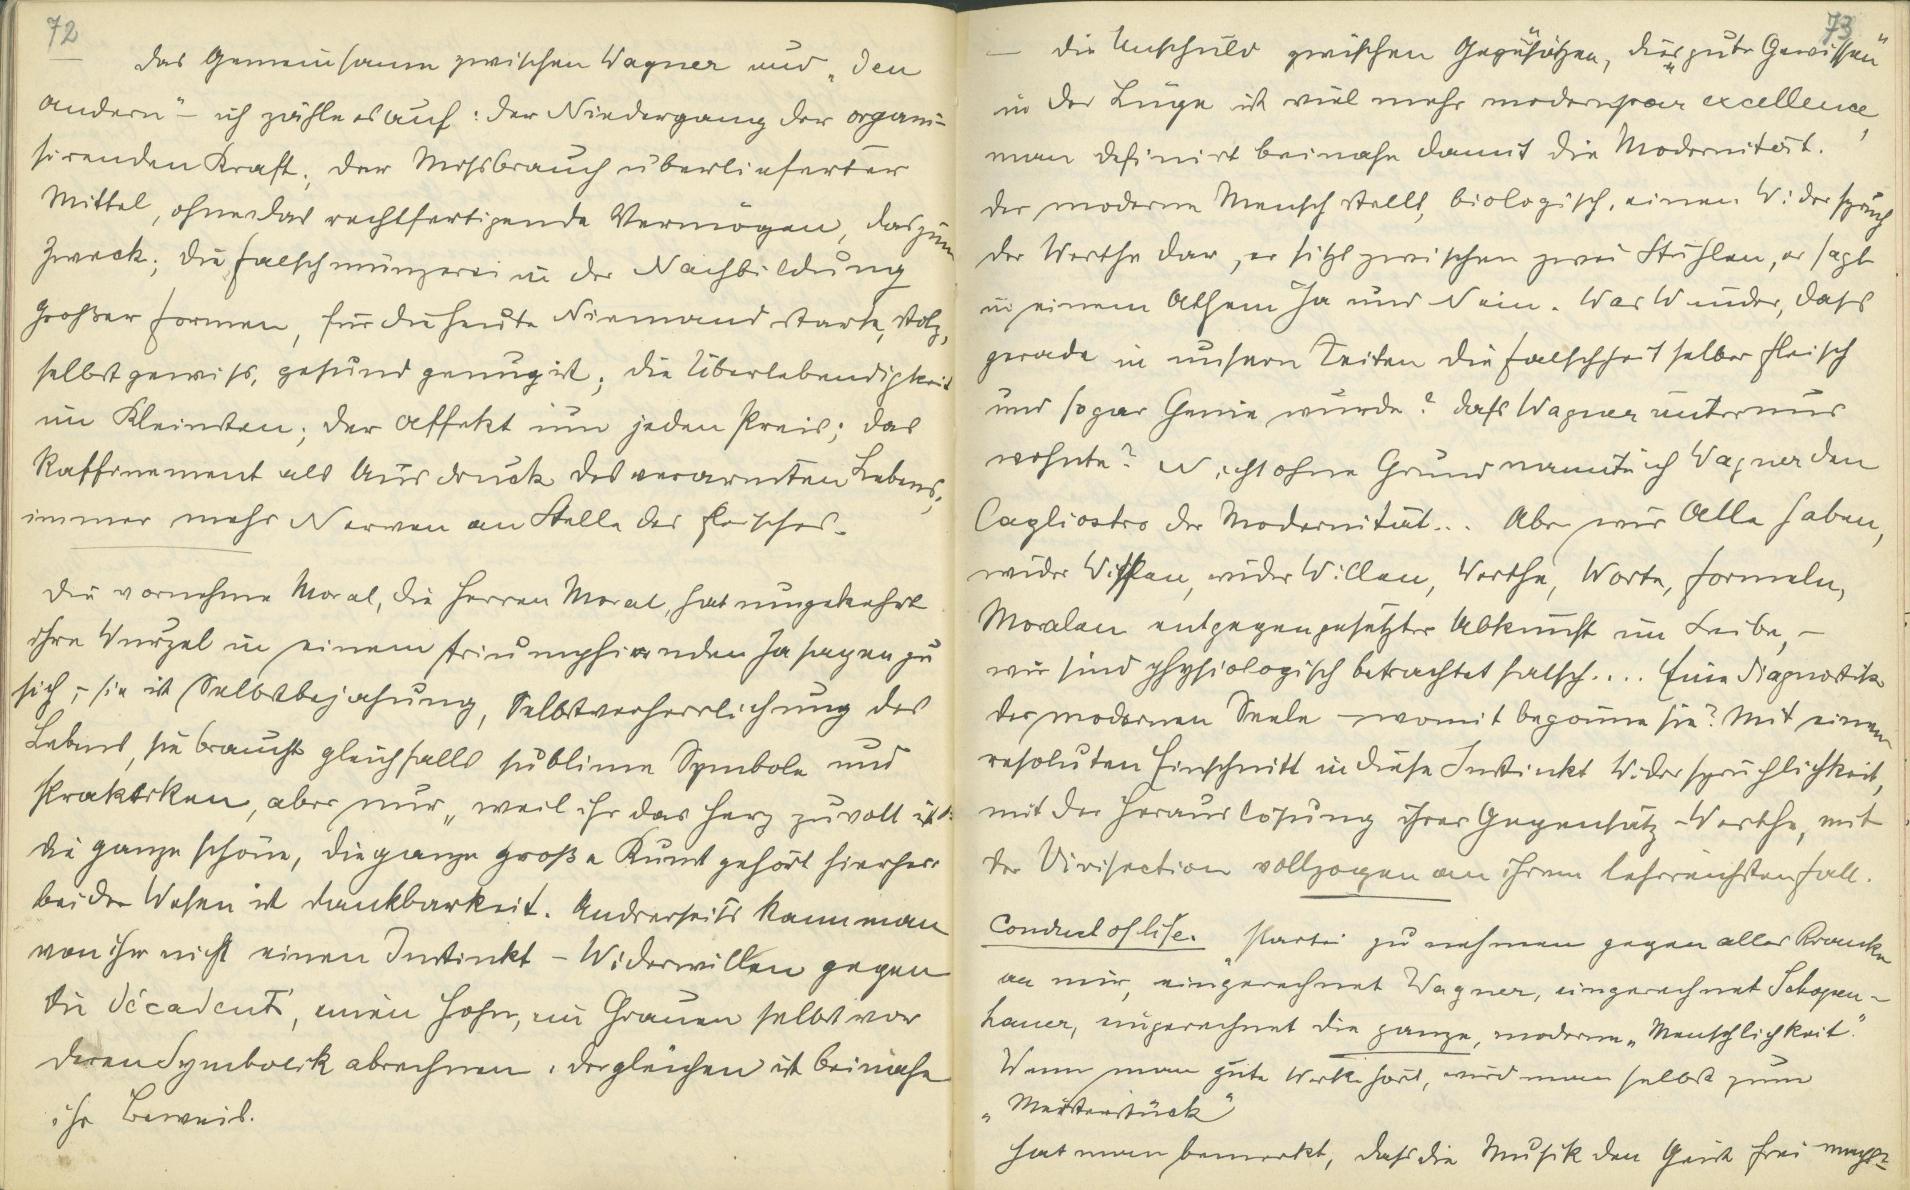 72
Das Gemeinsame zwischen Wagner und „den
andern" – ich zähle es auf: der Niedergang der organi-
sirenden Kraft; der Missbrauch überlieferter
Mittel, ohne das rechtfertigende Vermögen, das zum
Zweck; die Falschmünzerei in der Nachbildung
großer Formen, für die heute Niemand stark, stolz,
selbstgewiss, gesund genug ist; die Überlebendigkeit
im Kleinsten; der Affekt um jeden Preis; das
Raffinement als Ausdruck des verarmten Lebens;
immer mehr Nerven an Stelle des Fleisches.
Die vornehme Moral, die Herren Moral, hat umgekehrt
ihre Wurzel in einem triumphierenden Ja sagen zu
sich, – sie ist Selbstbejahung, Selbstverherrlichung des
Lebens, sie braucht gleichfalls sublime Symbole und
Praktiken, aber nur „weil ihr das Herz zu voll ist".
Die ganze schöne, die ganze große Kunst gehört hierher:
beider Wesen ist Dankbarkeit. Andrerseits kann man
von ihr nicht einen Instinkt – Widerwillen gegen
die décadents, einen Hohn, ein Grauen selbst vor
deren Symbolik abrechnen. dergleichen ist beinahe
ihr Beweis.
73
– Die Unschuld zwischen Gegensätzen, dies „gute Gewissen"
in der Lüge ist viel mehr modern par excellence,
man definirt beinahe damit die Modernität.
Der moderne Mensch stellt, biologisch, einen Widerspruch
der Werthe dar, er sitzt zwischen zwei Stühlen, er sagt
in einem Athem Ja und Nein. Was Wunder, dass
gerade in unsern Zeiten die Falschheit selber Fleisch
und sogar Genie wurde? dass Wagner unter uns
wohnte? Nicht ohne Grund nannte ich Wagner den
Cagliostro der Modernität... Aber wir Alle haben,
wider Wissen, wider Willen, Werthe, Worte, Formeln,
Moralen entgegengesetzter Abkunft im Leibe, –
wir sind physiologisch betrachtet falsch.... Eine Diagnostik
der modernen Seele – womit begönne sie? Mit einem
resoluten Einschnitt in diese Instinkt Widersprüchlichkeit,
mit der Herauslösung ihrer Gegensatz-Werthe, mit
der Vivisection vollzogen an ihrem lehrreichsten Fall.
Conduct of life. „Partei zu nehmen gegen alles Kranke
an mir, eingerechnet Wagner, eingerechnet Schopen-
hauer, eingerechnet die ganze, moderne „Menschlichkeit".
Wenn man gute Werke hört, wird man selbst zum
„Meisterstück"
Hat man bemerkt, dass die Musik den Geist frei macht?